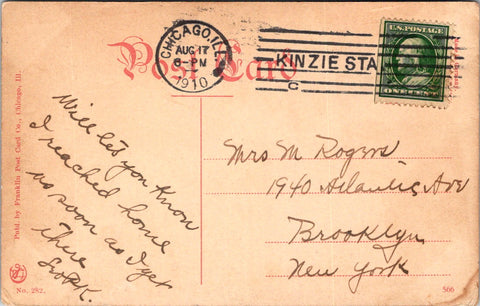 CHICAGO, ILL.
AUG 17
6-PM
1910
KINZIE STA
C
U.S. POSTAGE
ONE CENT
Post Card
Will let you know
I reached home
as soon as I get
there
Mrs M Rogers
1940 Atlantic Ave
Brooklyn
New York
Publ. by Franklin Post Card Co., Chicago, Ill.
No. 282.
566